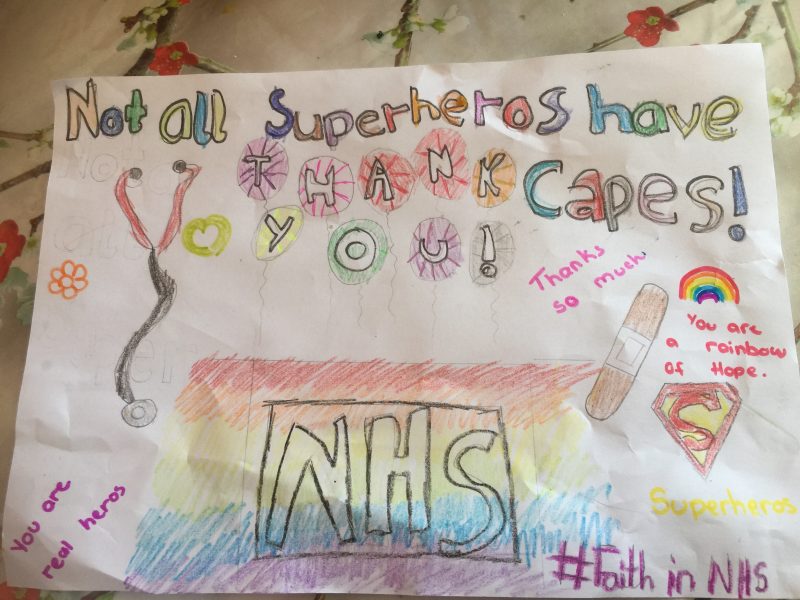 Not all Superheros have
Capes!
THANK
YOU!
Thanks
so much
You are
a rainbow
of Hope.
S
Superheros
NHS
You are
real heros
#Faith in NHS